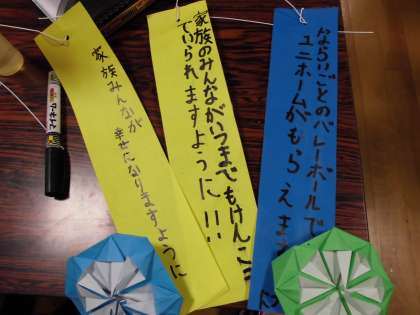 ならいごとのバレーボールで
ユニホームがもらえます
家族のみんながいつまでもけんこう
でいられますように!!!
家族みんなが
幸せになりますように